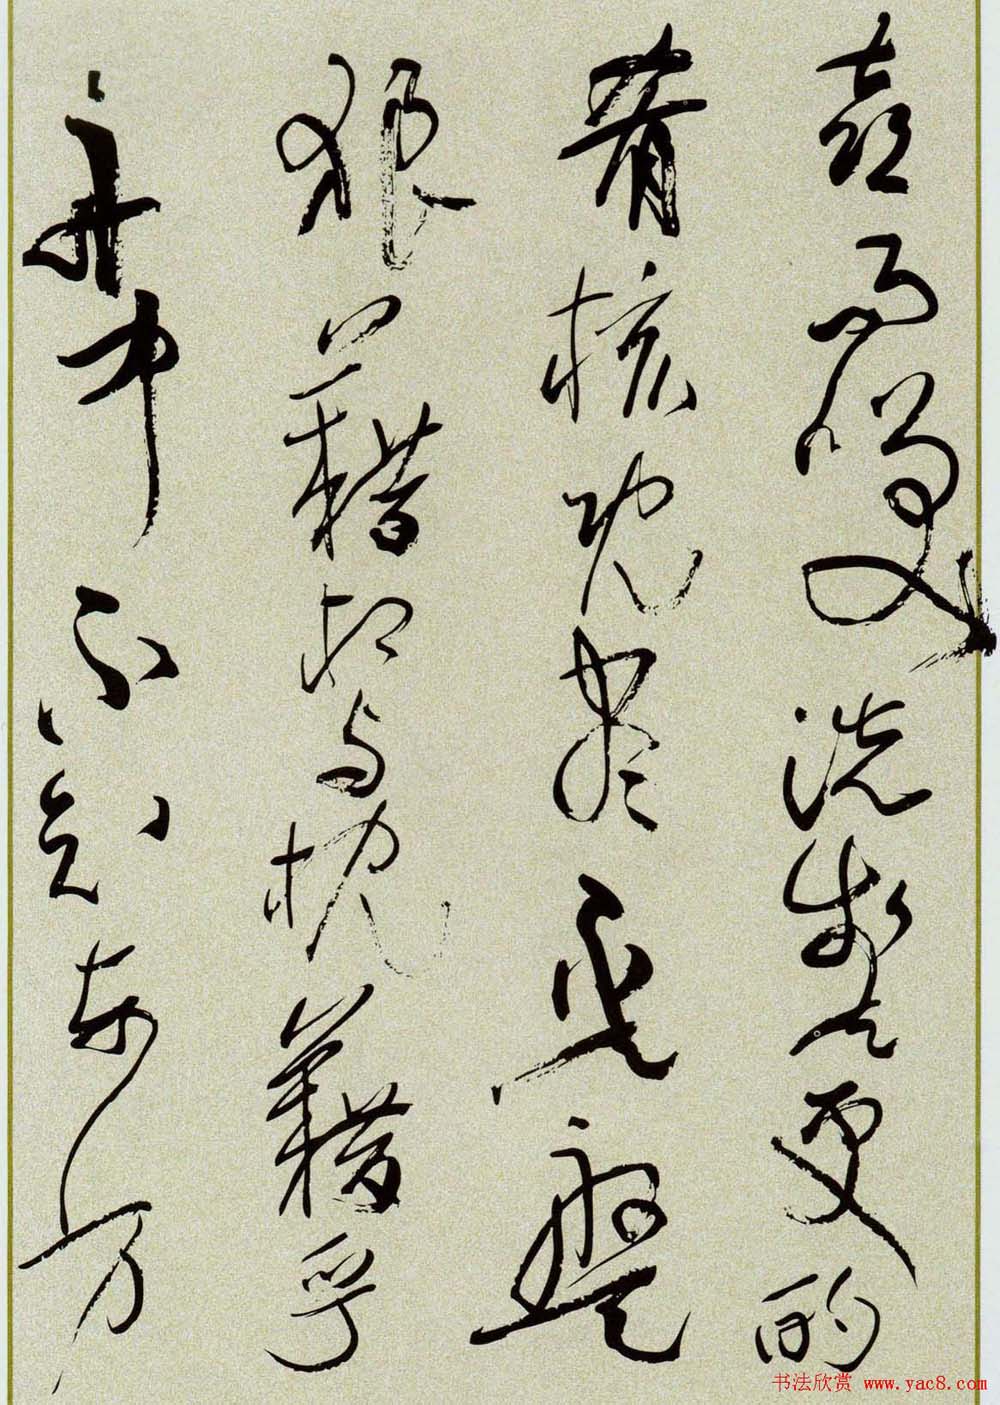 喜而笑洗盏更酌
肴核既尽杯盘
狼藉相与枕藉乎
舟中不知东方
书法欣赏 www.yac8.com